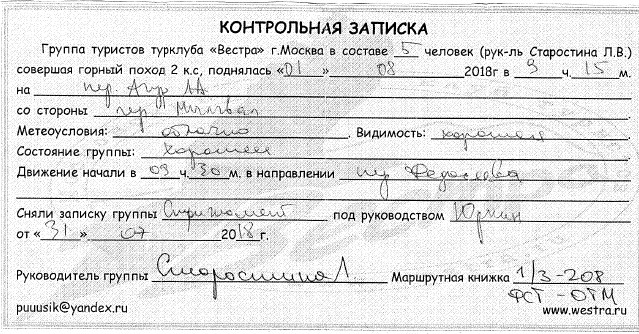 КОНТРОЛЬНАЯ ЗАПИСКА
Группа туристов турклуба «Вестра» г.Москва в составе 5 человек (рук-ль Старостина Л.В.)
совершая горный поход 2 к.с, поднялась «01» 08 2018г в 9 ч. 15 м.
на пер. Агур 1А
со стороны пер.
Метеоусловия: облачно. Видимость: хорошая
Состояние группы: хорошее
Движение начали в 09 ч. 30 м. в направлении пер
Сняли записку группы под руководством Юркин
от «31» 07 2018г.
Руководитель группы Старостина Л. Маршрутная книжка 1/3-208
ФСТ - ОТМ
puuusik@yandex.ru www.westra.ru